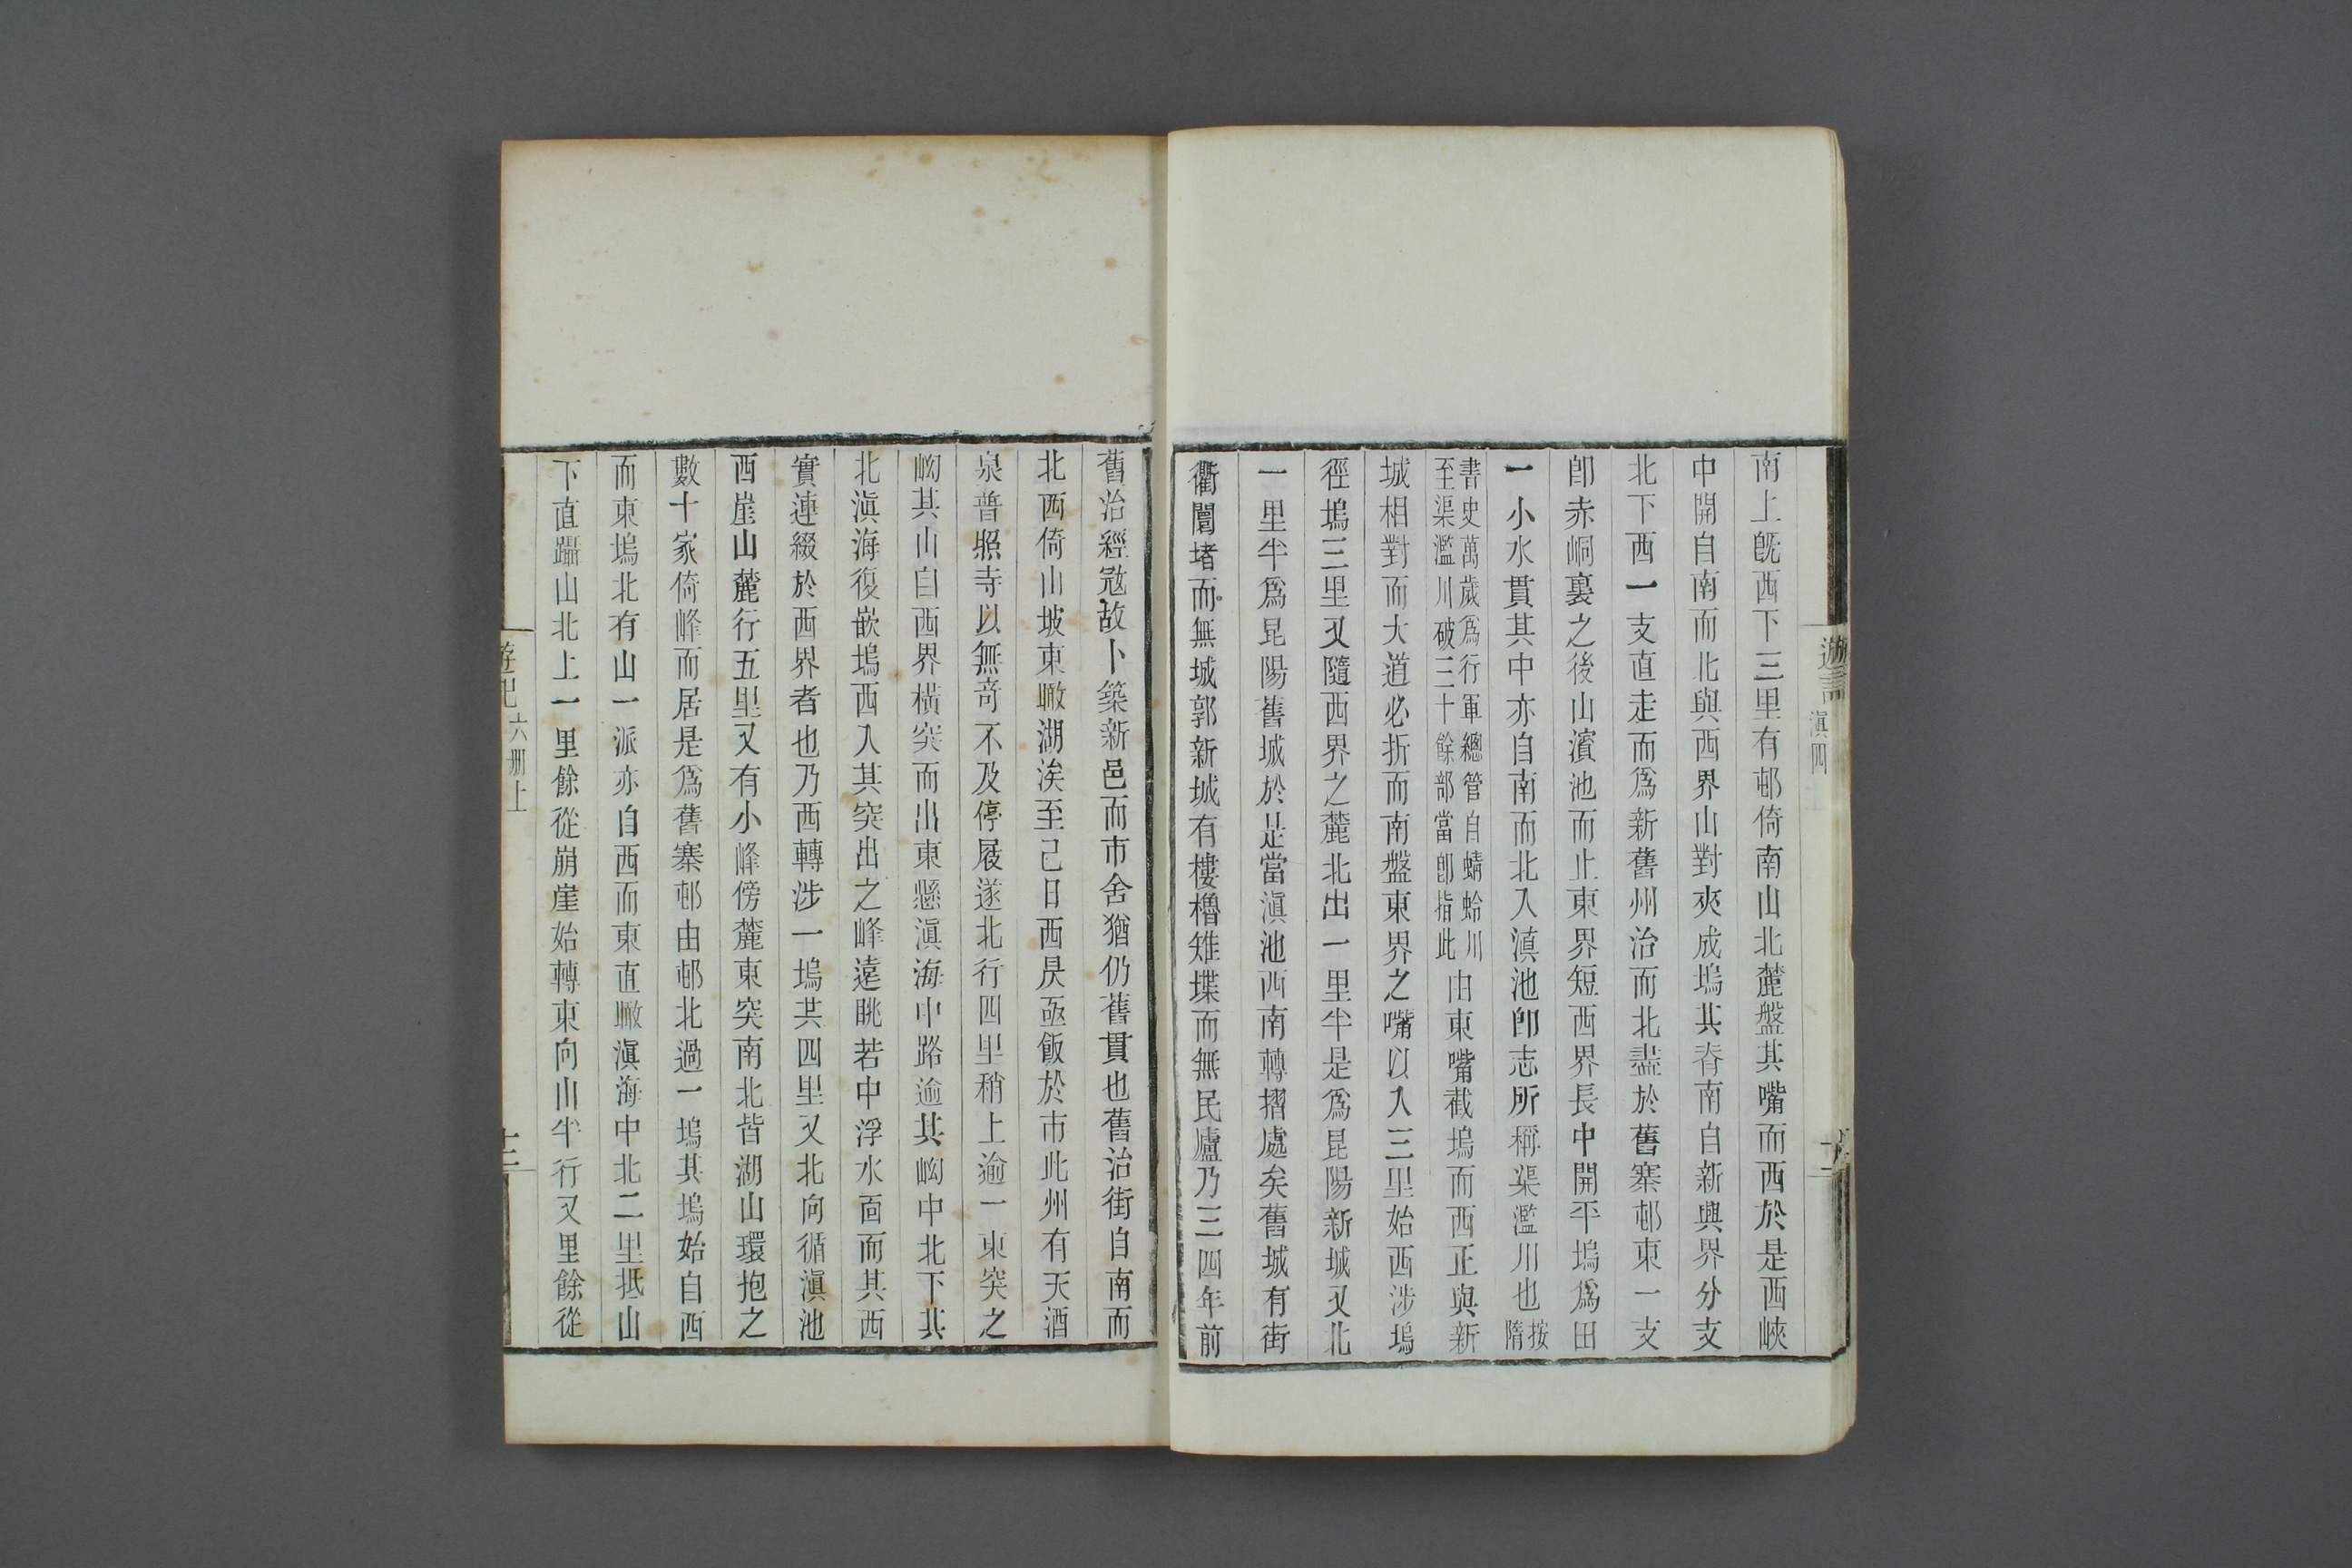 南上旣西下三里有邨倚南山北麓盤其嘴而西於是西峽
中開自南而北與西界山對夾成塢其脊南自新興界分支
北下西一支直走而爲新舊州治而北盡於舊寨邨東一支
卽赤峒裏之後山濱池而止東界短西界長中開平塢爲田
一小水貫其中亦自南而北入滇池卽志所稱渠濫川也按隋
書史萬歲爲行軍總管自蜻蛉川至渠濫川破三十餘部當卽指此由東嘴截塢而西正與新
城相對而大道必折而南盤東界之嘴以入三里始西涉塢
徑塢三里又隨西界之麓北出一里半是爲昆陽新城又北
一里半爲昆陽舊城於是當滇池西南轉摺處矣舊城有街
衢闤堵而無城郭新城有樓櫓雉堞而無民廬乃三四年前
遊記 滇四
舊治經寇故卜築新邑而市舍猶仍舊貫也舊治街自南而
北西倚山坡東瞰湖涘至己日西昃亟飯於市此州有天酒
泉普照寺以無奇不及停屐遂北行四里稍上逾一東突之
岰其山自西界橫突而出東懸滇海中路逾其岰中北下其
北滇海復嵌塢西入其突出之峰遠眺若中浮水面而其西
實連綴於西界者也乃西轉涉一塢共四里又北向循滇池
西崖山麓行五里又有小峰傍麓東突南北皆湖山環抱之
數十家倚峰而居是爲舊寨邨由邨北過一塢其塢始自西
而東塢北有山一派亦自西而東直瞰滇海中北二里抵山
下直躡山北上一里餘從崩崖始轉東向山半行又里餘從
遊記 六册上